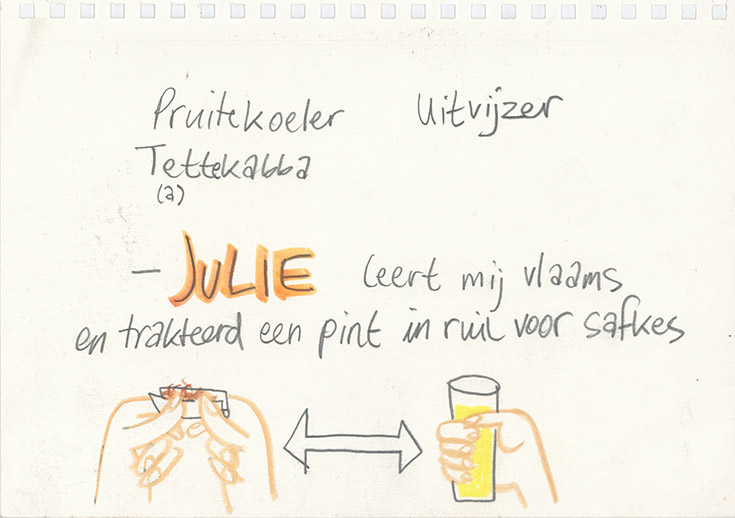 Pruitekoeler Uitvijzer
Tettekabba
(a)
- JULIE leert mij vlaams
en trakteerd een pint in ruil voor safkes